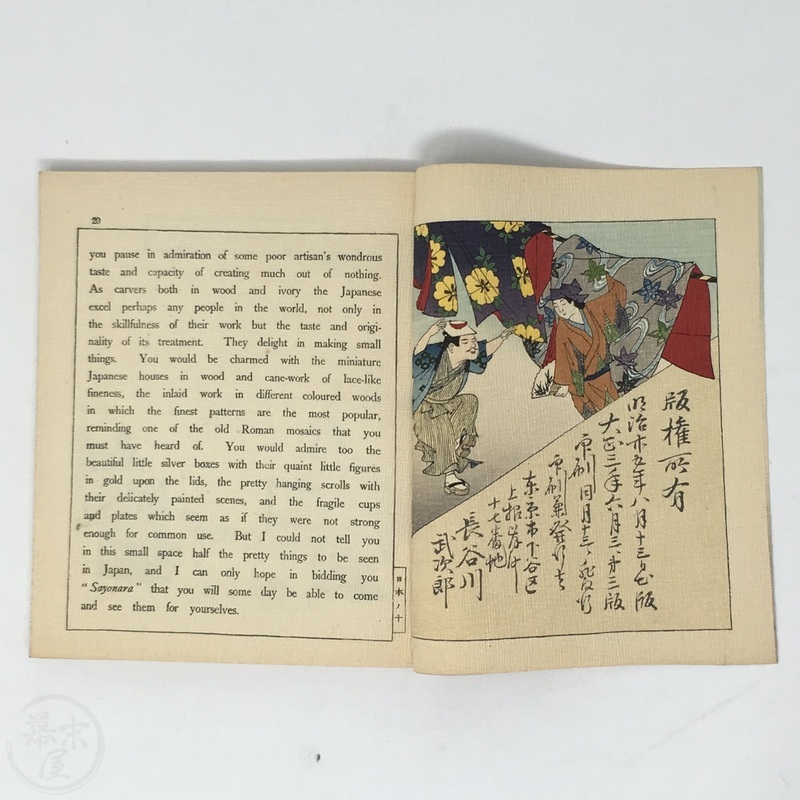 20
you pause in admiration of some poor artisan's wondrous
taste and capacity of creating much out of nothing.
As carvers both in wood and ivory the Japanese
excel perhaps any people in the world, not only in
the skillfulness of their work but the taste and origi-
nality of its treatment. They delight in making small
things. You would be charmed with the miniature
Japanese houses in wood and cane-work of lace-like
fineness, the inlaid work in different coloured woods
in which the finest patterns are the most popular,
reminding one of the old Roman mosaics that you
must have heard of. You would admire too the
beautiful little silver boxes with their quaint little figures
in gold upon the lids, the pretty hanging scrolls with
their delicately painted scenes, and the fragile cups
and plates which seem as if they were not strong
enough for common use. But I could not tell you
in this small space half the pretty things to be seen
in Japan, and I can only hope in bidding you
"Sayonara" that you will some day be able to come
and see them for yourselves.
日本ノ十
版権所有
明治廿五年八月十三日出版
大正三年六月三日第三版
印刷同月十三日発行
印刷兼発行者
東京市下谷区
上根岸町
十七番地
長谷川
武次郎
幕末屋